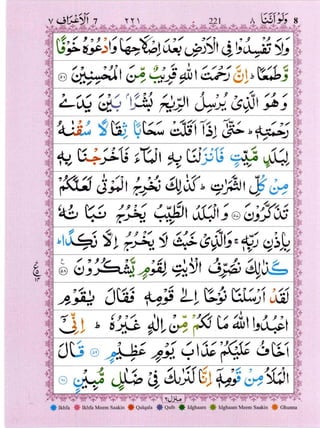 ٧ اَلْاَعْرَاف 7 ٢٢١ 221 ٨ وَلَوْاَنَّنَا 8
وَلَا تُفْسِدُوْا فِى الْاَرْضِ بَعْدَ اِصْلَاحِهَا وَادْعُوْهُ خَوْفًا
وَّطَمَعًا ؕ اِنَّ رَحْمَتَ اللّٰهِ قَرِيْبٌ مِّنَ الْمُحْسِنِيْنَ ۝٥٦
وَهُوَ الَّذِىْ يُرْسِلُ الرِّيٰحَ بُشْرًۢا بَيْنَ يَدَىْ
رَحْمَتِهٖ ؕ حَتّٰٓى اِذَآ اَقَلَّتْ سَحَابًا ثِقَالًا سُقْنٰهُ
لِبَلَدٍ مَّيِّتٍ فَاَنْزَلْنَا بِهِ الْمَآءَ فَاَخْرَجْنَا بِهٖ
مِنْ كُلِّ الثَّمَرٰتِ ؕ كَذٰلِكَ نُخْرِجُ الْمَوْتٰى لَعَلَّكُمْ
تَذَكَّرُوْنَ ۝٥٧ وَالْبَلَدُ الطَّيِّبُ يَخْرُجُ نَبَاتُهٗ
بِاِذْنِ رَبِّهٖ ۚ وَالَّذِىْ خَبُثَ لَا يَخْرُجُ اِلَّا نَكِدًا ؕ
كَذٰلِكَ نُصَرِّفُ الْاٰيٰتِ لِقَوْمٍ يَّشْكُرُوْنَ ۝٥٨
لَقَدْ اَرْسَلْنَا نُوْحًا اِلٰى قَوْمِهٖ فَقَالَ يٰقَوْمِ
اعْبُدُوا اللّٰهَ مَا لَكُمْ مِّنْ اِلٰهٍ غَيْرُهٗ ؕ اِنِّىْٓ
اَخَافُ عَلَيْكُمْ عَذَابَ يَوْمٍ عَظِيْمٍ ۝٥٩ قَالَ
الْمَلَاُ مِنْ قَوْمِهٖٓ اِنَّا لَنَرٰىكَ فِىْ ضَلٰلٍ مُّبِيْنٍ ۝٦٠
منزل٢
Ikhfa Ikhfa Meem Saakin Qalqala Qalb Idghaam Idghaam Meem Saakin Ghunna